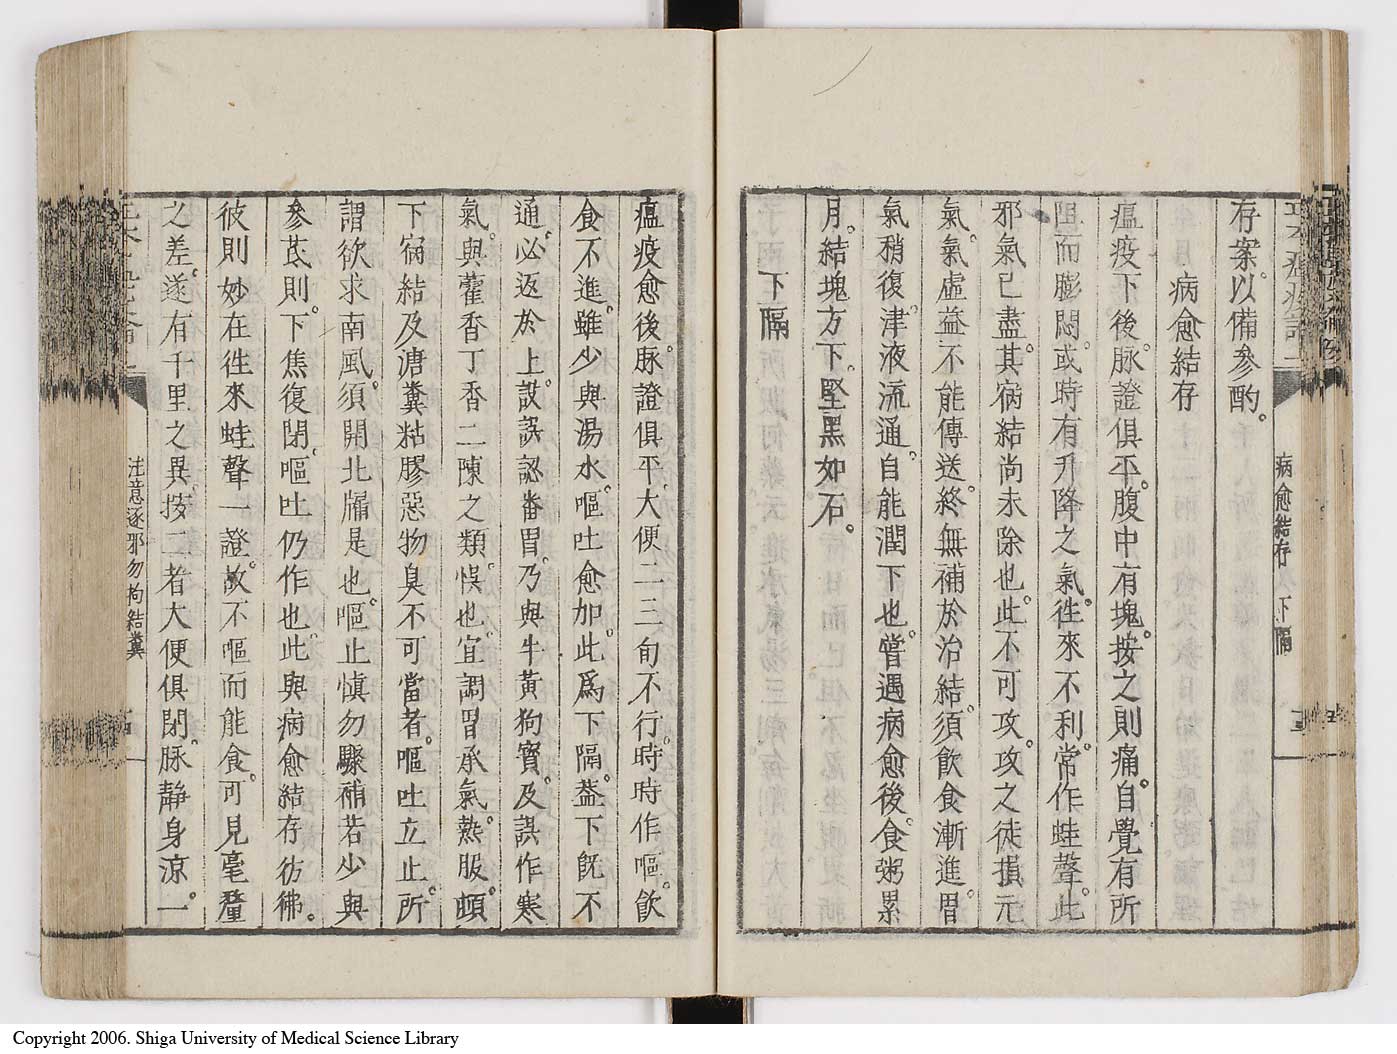 存案。以備參酌。
病愈結存
瘟疫下後。脉證俱平。腹中有塊。按之則痛。自覺有所
阻而膨悶。或時有升降之氣。徃來不利。常作蛙聲。此
邪氣已盡。其宿結尚未除也。此不可攻。攻之徒損元
氣。氣虛益不能傳送。終無補於治結。須飲食漸進。胃
氣稍復。津液流通。自能潤下也。嘗遇病愈後。食粥累
月。結塊方下。堅黑如石。
下隔
病愈結存 下隔
瘟疫愈後。脉證俱平。大便二三旬不行。時時作嘔。飲
食不進。雖少與湯水。嘔吐愈加。此爲下隔。葢下旣不
通。必返於上。設誤認畨胃。乃與牛黃狗寳。及誤作寒
氣。與藿香丁香二陳之類。悞也。宜調胃承氣。熱服。頓
下宿結及溏糞粘膠惡物臭不可當者。嘔吐立止。所
謂欲求南風。須開北牖是也。嘔止愼勿驟補。若少與
參芪則。下焦復閉。嘔吐仍作也。此與病愈結存彷彿。
彼則妙在徃來蛙聲一證。故不嘔而能食。可見毫釐
之差。遂有千里之異。按二者大便俱閉。脉靜身凉。一
注意逐邪勿拘結糞
Copyright 2006. Shiga University of Medical Science Library